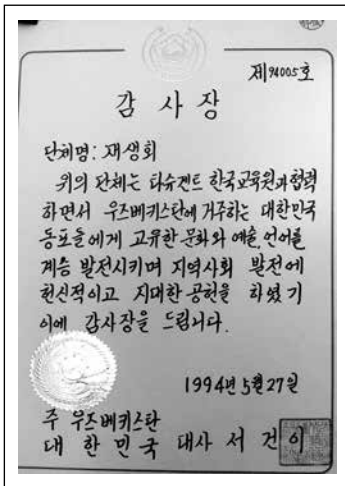 제94005호
감사장
단체명: 재생회
위의 단체는 타슈켄트 한국교육원과 협력
하면서 우즈베키스탄에 거주하는 대한민국
동포들에게 고유한 문화와 예술, 언어를
계승 발전시키며 지역사회 발전에
헌신적이고 지대한 공헌을 하였기
이에 감사장을 드립니다.
1994년 5월 27일
주 우즈베키스탄
대한민국 대사 서건이